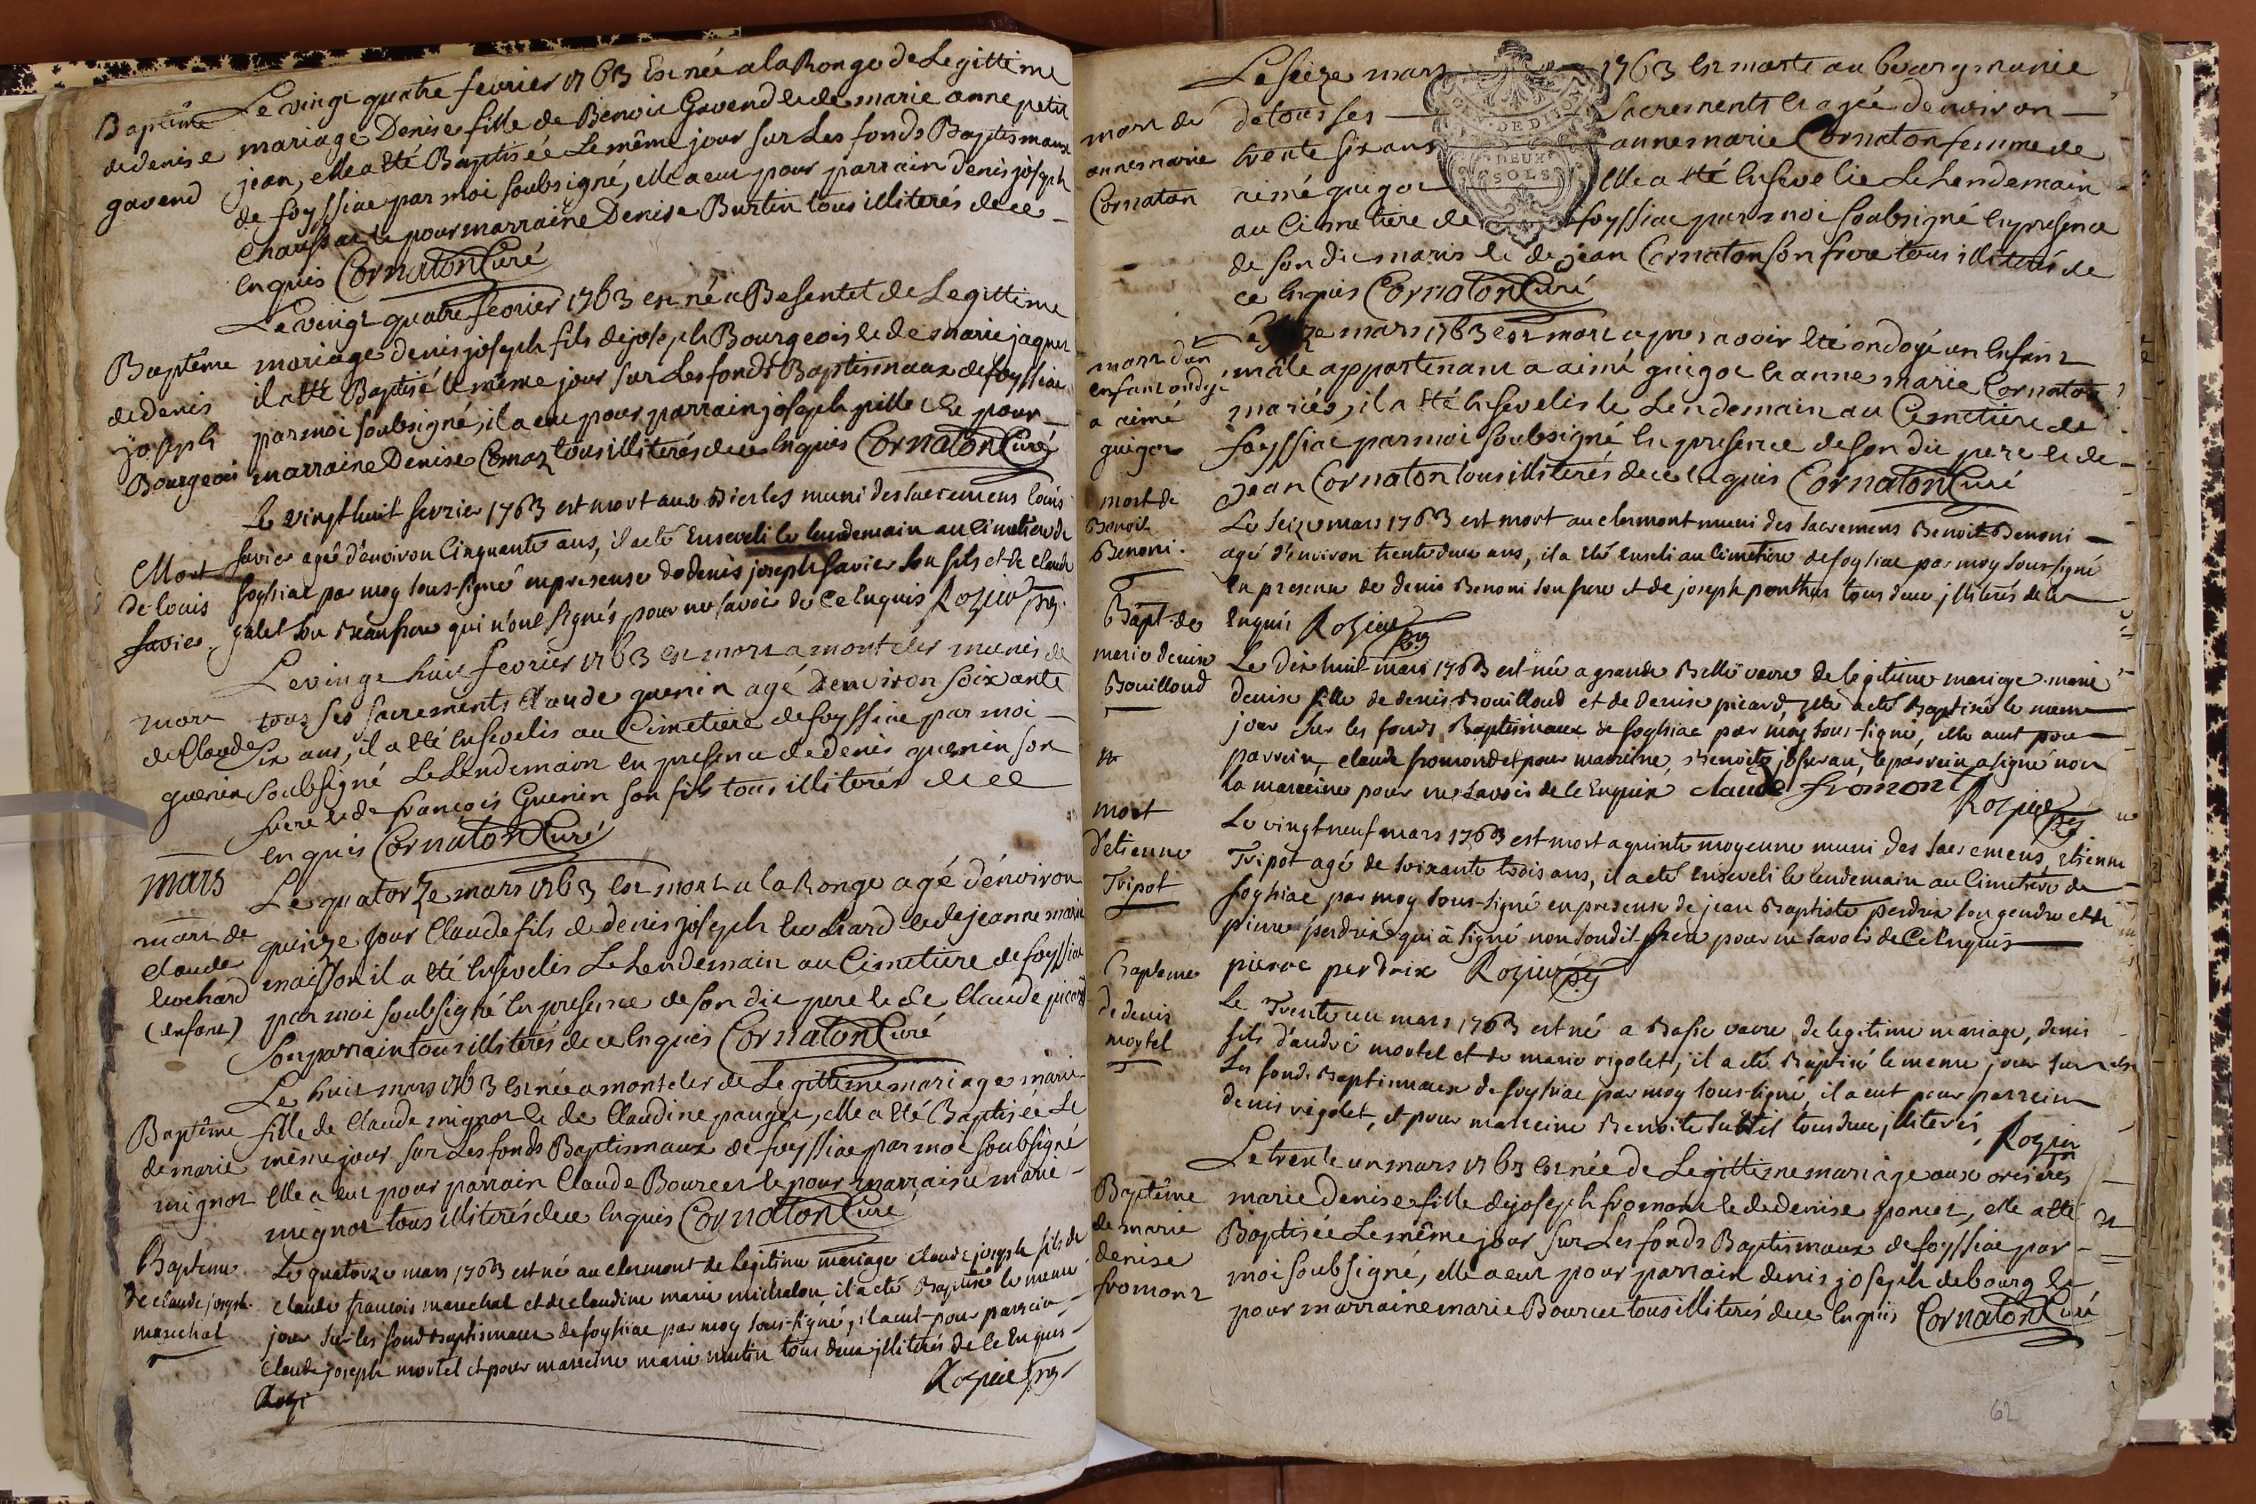 Baptême
de denise
gavend
Le vingt quatre fevrier 1763 Est née a la Ronge de Legittime
mariage Denise fille de Benoit Gavend et de marie anne petit
jean, elle a Eté Baptisée Le même jour sur Les fonds Baptismaux
de foyssiac par moi soubsigné, elle a eut pour parrain denis joseph
Chaussat et pour marraine Denise Burtin tous illiterés de ce –
Enquis Cornaton Curé
Baptême
de denis
joseph
Bourgeois
Le vingt quatre fevrier 1763 est né a Besentet de Legittime
mariage denis joseph fils de joseph Bourgeois et de marie jaquet
il a Eté Baptisé le même jour sur Les fonds Baptismaux de foyssiac
par moi soubsigné, il a eut pour parrain joseph pillet Et pour
marraine Denise Comaz tous illiterés de ce Enquis Cornaton Curé
Mort
de Louis
favier
Le vingt huit fevrier 1763 est mort aux muni des sacremens louis
favier agé d'environ Cinquante ans, il a eté Enseveli le lendemain au Cimetiere de
foyssiac par moy sous-signé en presence de denis joseph favier son fils et de claude
galet son Beaufrere qui n'ont signés pour ne savoir de ce Enquis Rozier ptre
mort
de Claude
guenin
Le vingt huit fevrier 1763 est mort a montcler munis de
tous ses sacrements Claude guenin agé Denviron soixante
six ans, il a Eté Ensevelis au Cimetiere de foyssiac par moi –
soubsigné Le Lendemain en presence de denis guenin son
frere et de françois Guenin son fils tous illiterés de ce
enquis Cornaton Curé
mars
mort de
Claude
Euchard
(enfant)
Le quatorze mars 1763 Est mort a la Ronge agé d'environ
quinze jour Claude fils de denis joseph Euchard et de jeanne marie
maisson il a Eté Ensevelis Le Lendemain au Cimetiere de foyssiac
par moi soubsigné En presence de son dit pere et de Claude picard
son parrain tous illiterés de ce Enquis Cornaton Curé
Baptême
de marie
mignot
Le huit mars 1763 Est née a montcler de Legittime mariage marie
fille de Claude mignot et de Claudine pauget, elle a Eté Baptisée Le
même jour sur Les fonds Baptismaux de foyssiac par moi soubsigné
elle a eut pour parrain Claude Bourcet et pour marraine marie –
mignot tous illiterés de ce Enquis Cornaton Curé
Bapteme
de claude joseph
marechal
Le quatorze mars 1763 est né au clermont de legitime mariage claude joseph fils de
claude francois marechal et de claudine marie michalon il a eté Baptisé le meme
jour sur les fond Baptismaux de foyssiac par moy sous-signé, il a eut pour parrein
claude joseph mortel et pour mareine marie mutin tous deux illiterés de ce Enquis
Rozier ptre
mort de
anne marie
Cornaton
Le seize mars 1763 Est morte au bourg munie
de tous ses Sacrements Et agée denviron –
trente six ans anne marie Cornaton femme de
aimé guigot Elle a Eté Ensevelie Le Lendemain
au Cimetiere de foyssiac par moi soubsigné En presence
de son dit maris et de jean Cornaton son frere tous illiterés de
ce Enquis Cornaton Curé
GEN. DE DIJON
DEUX
SOLS
mort d'un
enfant ondoyé
a aimé
guigot
Le seize mars 1763 est mort apres avoir Eté ondoyé un Enfant
mâle appartenant a aimé guigot Et anne marie Cornaton
mariés, il a Eté Ensevelis le Lendemain au Cimetiere de
foyssiac par moi soubsigné En presence de son dit pere et de –
Jean Cornaton tous illiterés de ce Enquis Cornaton Curé
mort de
Benoit
Benoni.
Le seize mars 1763 est mort au clermont muni des sacremens Benoit Benoni –
agé d'environ trente deux ans, il a eté enseli au Cimetiere de foyssiac par moy soussigné
En presence de denis Benoni son frere et de joseph ponthus tous deux illiterés de ce
Enquis Rozier ptre
Bapt. de
marie denise
Bouilloud
Le Dix huit mars 1763 est née a grande Belle vavre de legitime mariage marie
denise fille de denis Bouilloud et de denise picard, elle a eté Baptisée le meme
jour sur les fonds Baptismaux de foyssiac par moy sous-signé, elle a eut pour
parrein claude fromond et pour mareine Benoite josseran, le parrein a signé non
la mareine pour ne savoir de ce Enquise claude fromont
Rozier ptre
mort
d'etienne
Tripot
Le vingt neuf mars 1763 est mort a quinte moyenne muni des sacremens, etienne
Tripot agé de soixante trois ans, il a eté Enseveli le lendemain au Cimetiere de
foyssiac par moy sous-signé en presence de jean Baptiste perdrix son gendre et de
pierre perdrix qui a signé non son dit frere pour ne savoir de ce Enquis
pierre perdrix Rozier ptre
Bapteme
de denis
mortel
Le Trente un mars 1763 est né a Basse vavre de legitime mariage, denis
fils d'andré mortel et de marie rigolet, il a eté Baptisé le meme jour sur
les fonds Baptismaux de foyssiac par moy sous-signé, il a eut pour parrein
denis rigolet, et pour mareine Benoite subtil tous deux illiterés, Rozier
Baptême
de marie
denise
fromont
Le trente un mars 1763 Est née de Legittime mariage aux orsieres
marie Denise fille de joseph fromont et de denise poncet, elle a Eté
Baptisée Le même jour sur Les fonds Baptismaux de foyssiac par –
moi soubsigné, elle a eut pour parrain denis joseph debourg Et
pour marraine marie Bourcet tous illiterés de ce Enquis Cornaton Curé
62